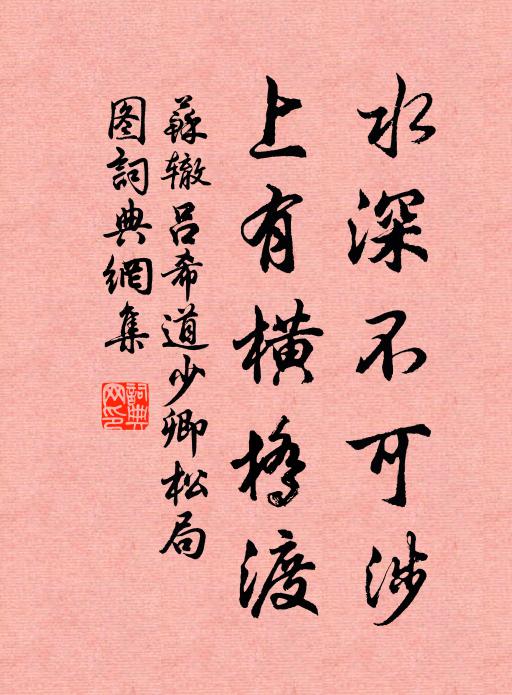 水深不可涉
上有横桥渡
蘇辙吕希道少卿松局
图詞典網集
詞典
网印